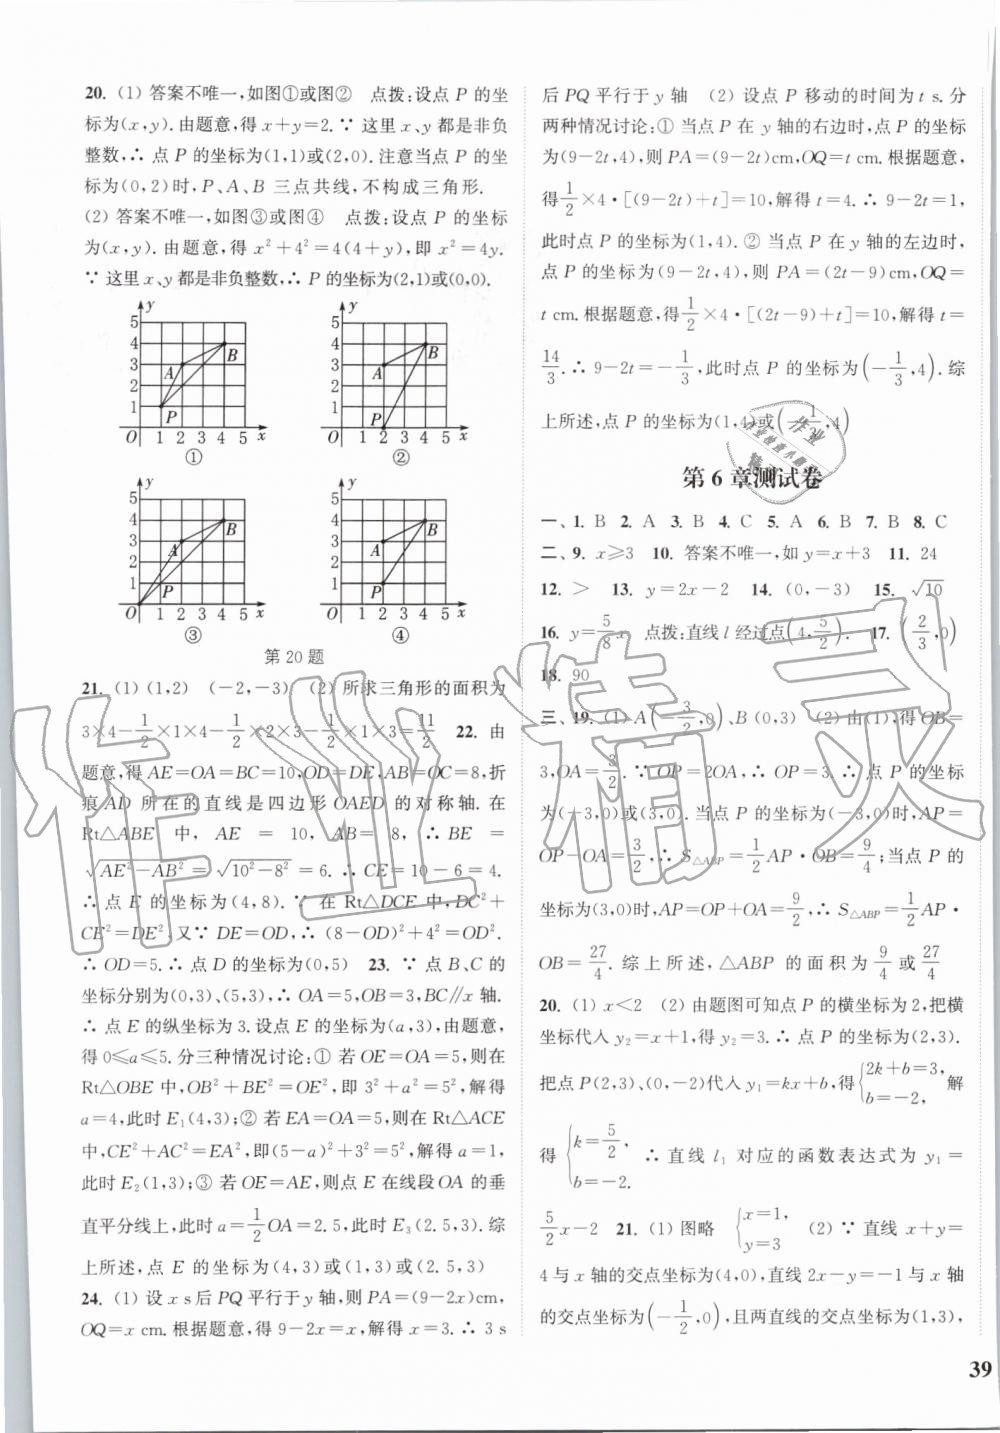 20. (1) 答案不唯一,如图①或图② 点拨:设点 P 的坐
标为(x,y). 由题意,得 x+y=2. ∵ 这里 x、y 都是非负
整数,∴ 点 P 的坐标为(1,1)或(2,0). 注意当点 P 的坐
标为(0,2)时,P、A、B 三点共线,不构成三角形.
(2) 答案不唯一,如图③或图④ 点拨:设点 P 的坐标
为(x,y). 由题意,得 x²+4²=4(4+y),即 x²=4y.
∵ 这里 x、y 都是非负整数,∴ P 的坐标为(2,1)或(0,0).
y 5 4 3 2 1 O 1 2 3 4 5 x A B P
①
y 5 4 3 2 1 O 1 2 3 4 5 x A B P
②
y 5 4 3 2 1 O 1 2 3 4 5 x A B P
③
y 5 4 3 2 1 O 1 2 3 4 5 x A B P
④
第 20 题
21. (1) (1,2) (-2,-3) (2) 所求三角形的面积为
3×4-1/2×1×4-1/2×2×3-1/2×1×3=11/2 22. 由
题意,得 AE=OA=BC=10,OD=DE,AB=OC=8,折
痕 AD 所在的直线是四边形 OAED 的对称轴. 在
Rt△ABE 中, AE = 10, AB= 8, ∴ BE =
√(AE²-AB²)=√(10²-8²)=6. ∴ CE=10-6=4.
∴ 点 E 的坐标为(4,8). ∵ 在 Rt△DCE 中,DC²+
CE²=DE²,又∵ DE=OD,∴ (8-OD)²+4²=OD².
∴ OD=5. ∴ 点 D 的坐标为(0,5) 23. ∵ 点 B、C 的
坐标分别为(0,3)、(5,3),∴ OA=5,OB=3,BC∥x 轴.
∴ 点 E 的纵坐标为 3. 设点 E 的坐标为(a,3),由题意,
得 0≤a≤5. 分三种情况讨论:① 若 OE=OA=5,则在
Rt△OBE 中,OB²+BE²=OE²,即 3²+a²=5²,解得
a=4,此时 E₁(4,3);② 若 EA=OA=5,则在 Rt△ACE
中,CE²+AC²=EA²,即(5-a)²+3²=5²,解得 a=1,
此时 E₂(1,3);③ 若 OE=AE,则点 E 在线段 OA 的垂
直平分线上,此时 a=1/2OA=2.5,此时 E₃(2.5,3). 综
上所述,点 E 的坐标为(4,3)或(1,3)或(2.5,3)
24. (1) 设 x s后 PQ 平行于 y 轴,则 PA=(9-2x)cm,
OQ=x cm. 根据题意,得 9-2x=x,解得 x=3. ∴ 3 s
后 PQ 平行于 y 轴 (2) 设点 P 移动的时间为 t s. 分
两种情况讨论:① 当点 P 在 y 轴的右边时,点 P 的坐标
为(9-2t,4),则 PA=(9-2t)cm,OQ=t cm. 根据题意,
得1/2×4·[(9-2t)+t]=10,解得 t=4. ∴ 9-2t=1,
此时点 P 的坐标为(1,4). ② 当点 P 在 y 轴的左边时,
点 P 的坐标为(9-2t,4),则 PA=(2t-9)cm,OQ=
t cm. 根据题意,得1/2×4·[(2t-9)+t]=10,解得 t=
14/3. ∴ 9-2t=-1/3,此时点 P 的坐标为(-1/3,4). 综
上所述,点 P 的坐标为(1,4)或(-1/3,4)
第 6 章测试卷
一、1. B 2. A 3. B 4. C 5. A 6. B 7. B 8. C
二、9. x≥3 10. 答案不唯一,如 y=x+3 11. 24
12. > 13. y=2x-2 14. (0,-3) 15. √10
16. y=5/8x 点拨:直线 l 经过点(4,5/2). 17. (2/3,0)
18. 90
三、19. (1) A(-3/2,0)、B(0,3) (2) 由(1),得 OB=
3,OA=3/2. ∵ OP=2OA,∴ OP=3. ∴ 点 P 的坐标
为(-3,0)或(3,0). 当点 P 的坐标为(-3,0)时,AP=
OP-OA=3/2,∴ S△ABP=1/2AP·OB=9/4;当点 P 的
坐标为(3,0)时,AP=OP+OA=9/2,∴ S△ABP=1/2AP·
OB=27/4. 综上所述,△ABP 的面积为 9/4 或 27/4
20. (1) x<2 (2) 由题图可知点 P 的横坐标为 2,把横
坐标代入 y₂=x+1,得 y₂=3. ∴ 点 P 的坐标为(2,3).
把点 P(2,3)、(0,-2)代入 y₁=kx+b,得{2k+b=3, b=-2, 解
得 {k=5/2, b=-2. ∴ 直线 l₁ 对应的函数表达式为 y₁=
5/2x-2 21. (1) 图略 {x=1, y=3 (2) ∵ 直线 x+y=
4 与 x 轴的交点坐标为(4,0),直线 2x-y=-1 与 x 轴
的交点坐标为(-1/2,0),且两直线的交点坐标为(1,3),
39
作业精灵